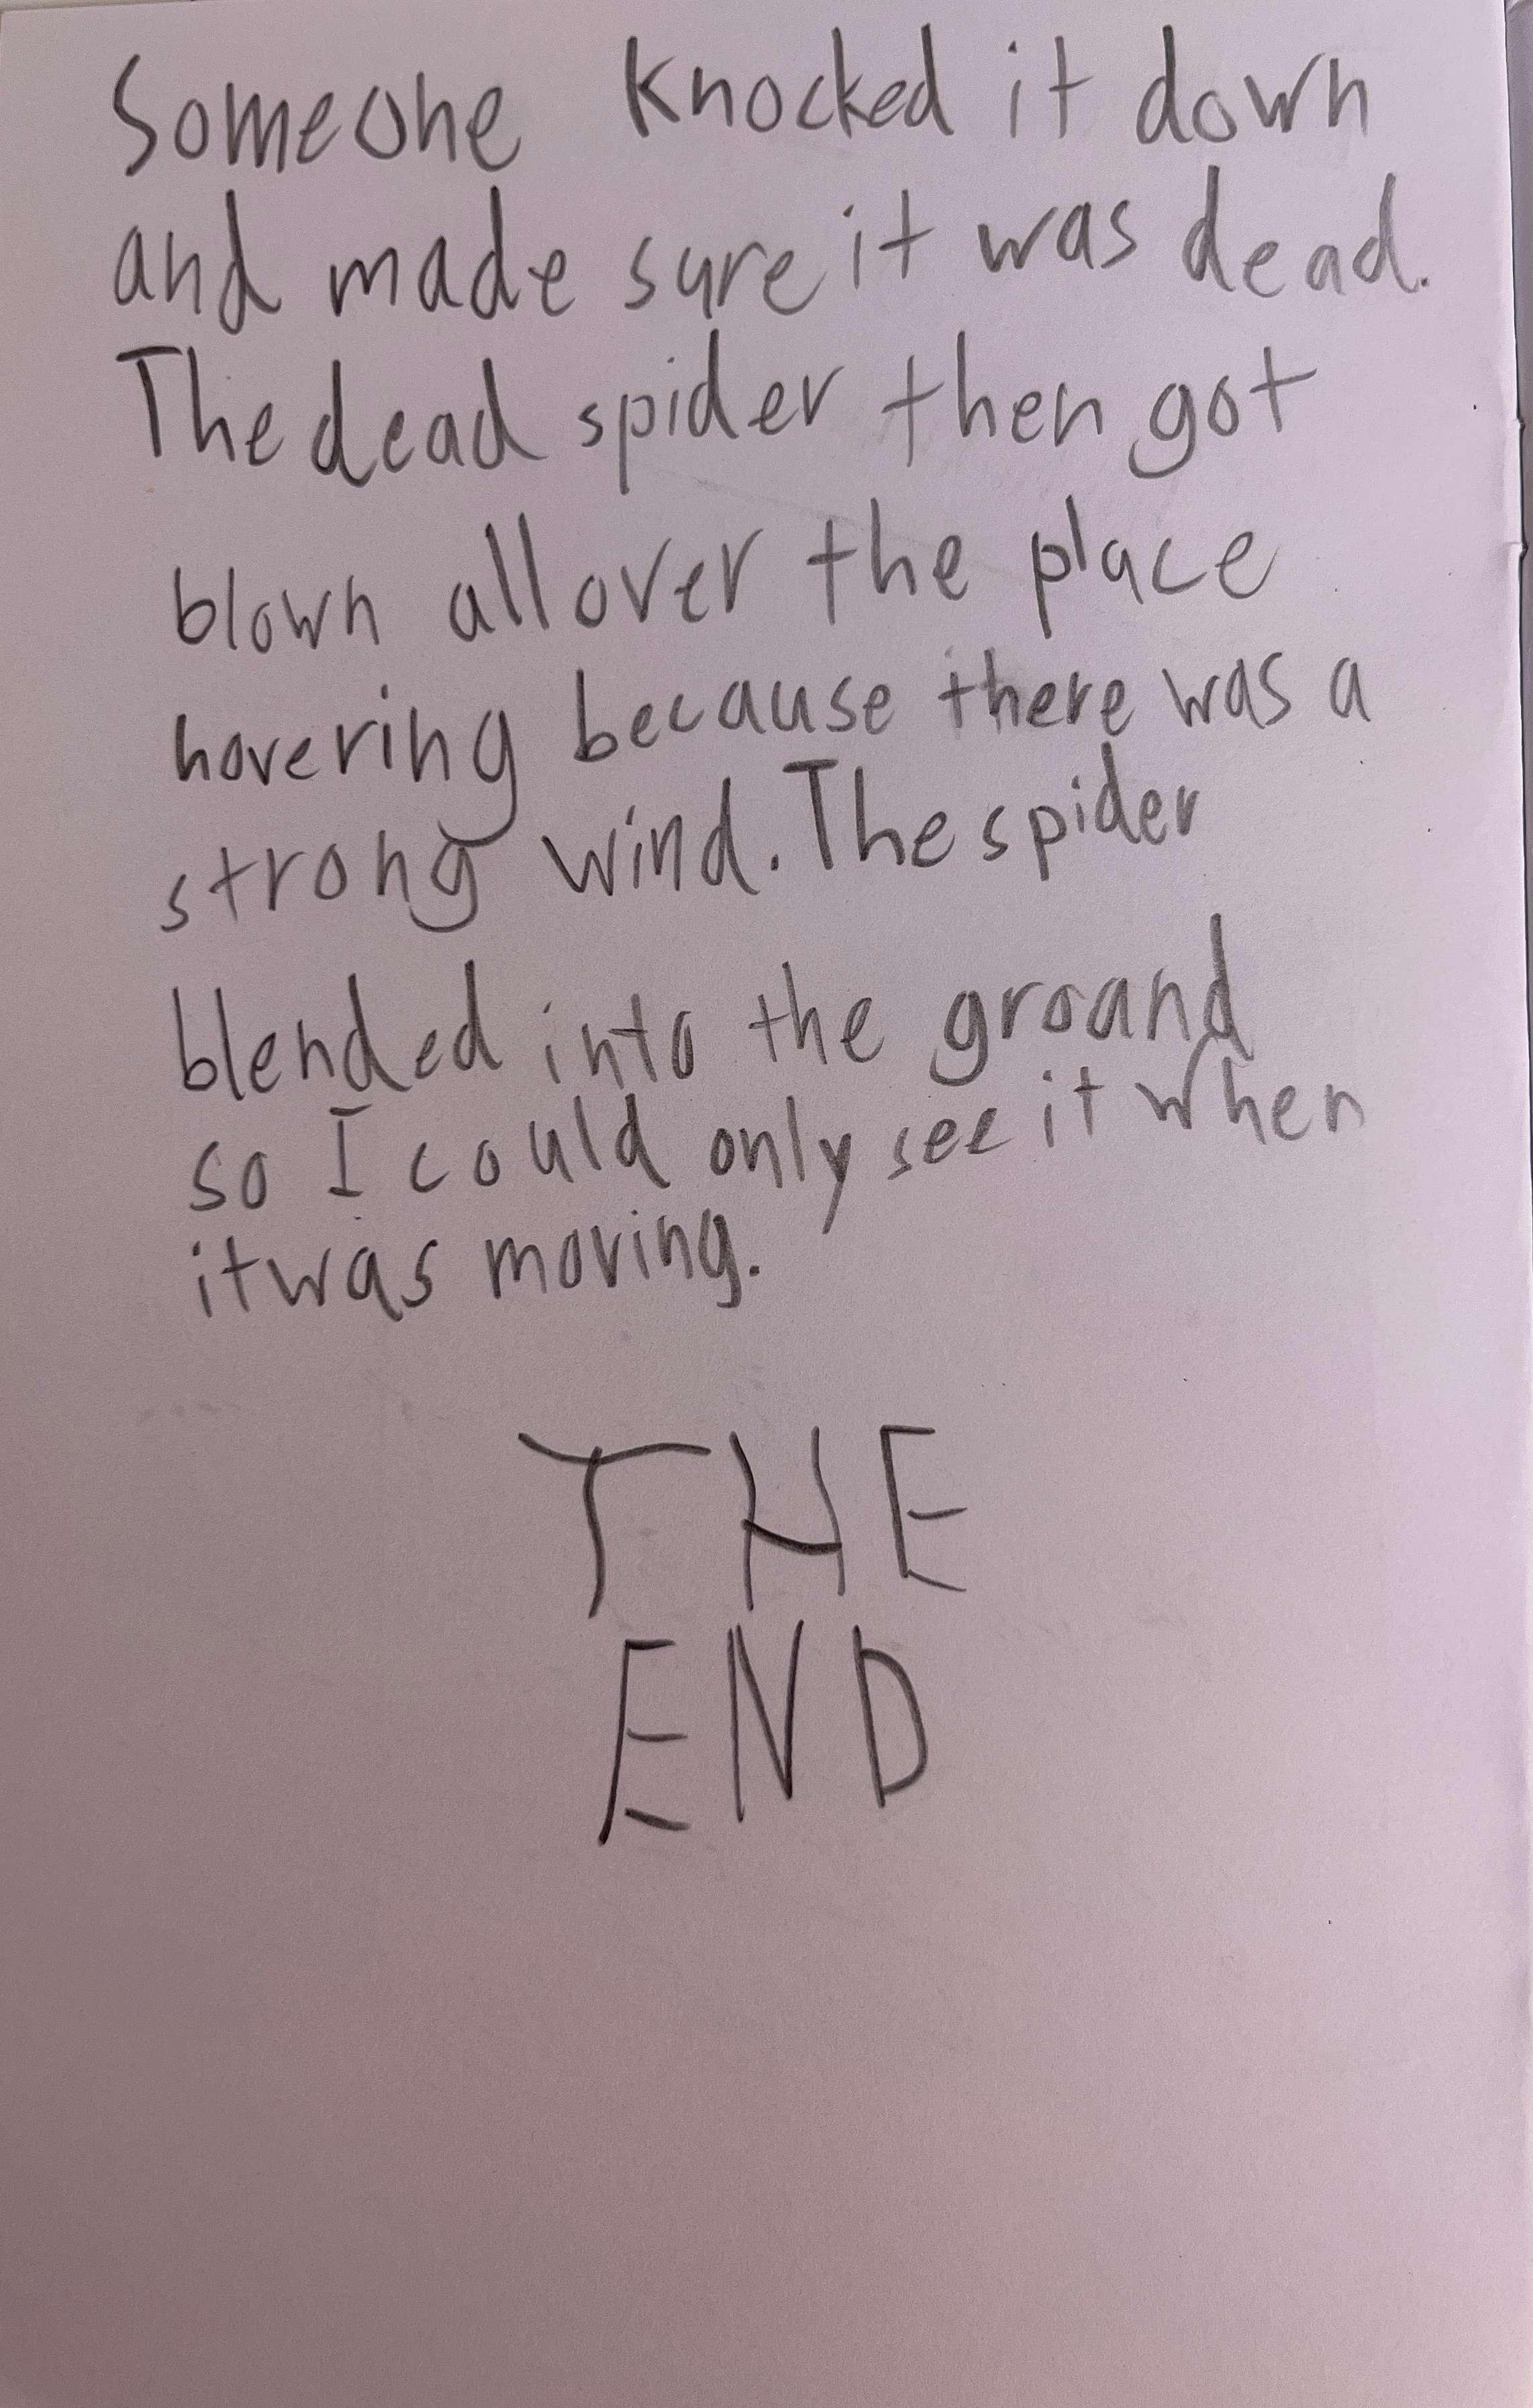 Someone knocked it down
and made sure it was dead.
The dead spider then got
blown all over the place
hovering because there was a
strong wind. The spider
blended into the groand
so I could only see it when
it was moving.
THE
END